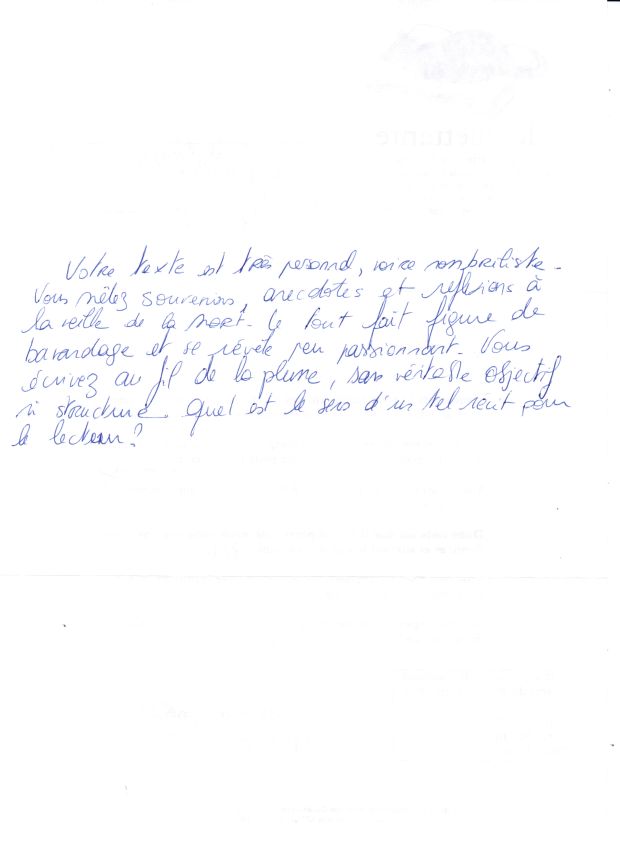 Votre texte est très personnel, voire nombriliste.
Vous mêlez souvenirs, anecdotes et réflexions à
la veille de la mort. Le tout fait figure de
bavardage et se révèle peu passionnant. Vous
écrivez au fil de la plume, sans véritable objectif
ni structure. Quel est le sens d'un tel récit pour
le lecteur?